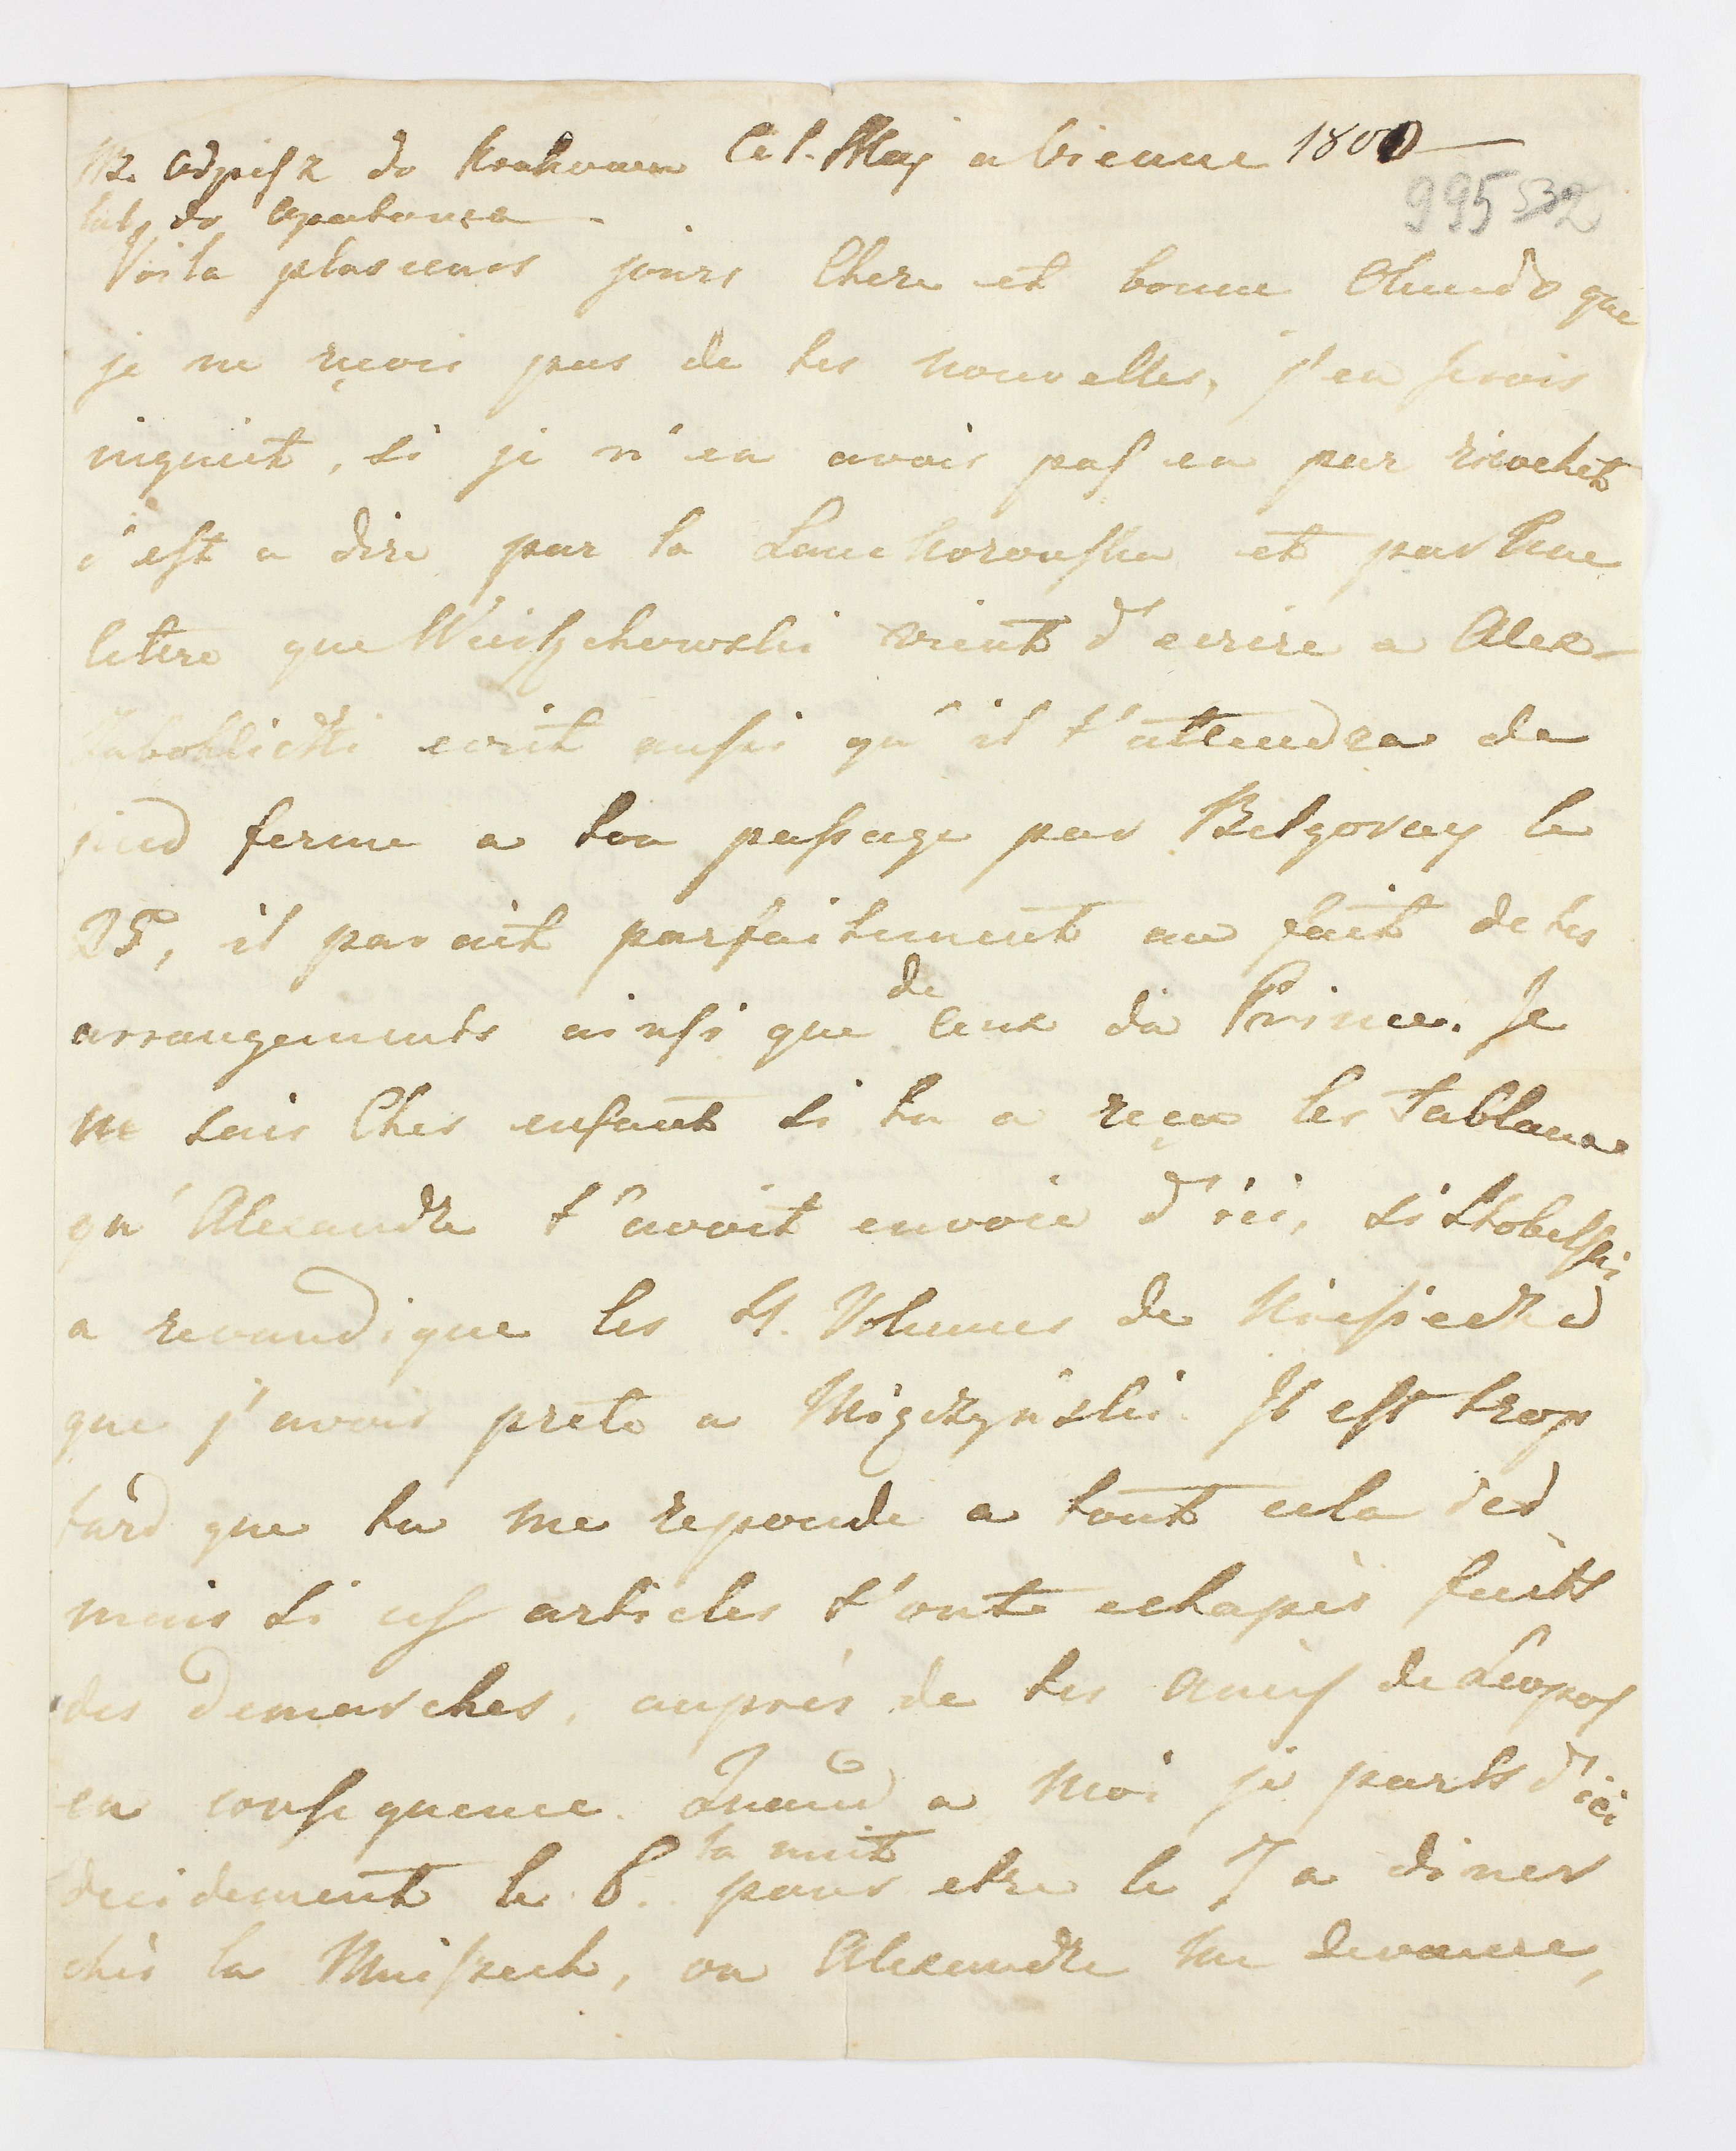 NB. Odpisz do Krakowa Ce 1. Maj a Vienne 1800
lub do Opatowa
995 532
Voila plusieurs jours Chere et bonne que
je ne reçois pas de tes nouvelles, j'en serois
inquiet, si je n'en avois pas eu par ricochet
c'est a dire par la Lanckoronska et par une
letere que vient d'ecrire a Alex-
ecrit aussi qu'il t'attendra de
pied ferme a ton passage par Bilgoray le
25, il parait parfaitement au fait de tes
arrangements ainsi que de ceux du Prince. Je
ne sais Cher enfant si tu a reçu les Tableaux
qu'Alexandre t'avoit envoié d'ici, si Skobelski
a revandique les 4. Volumes de Niesiecki
que j'avois preté a Miączyński. Il est trop
tard que tu me reponde a tout cela ici
mais si ces articles t'ont echapés faits
des demarches, auprés de tes amis de Leopol
en consequence. Quand a moi je parts d'ici
decidement le 6. la nuit pour etre le 7 a diner
chés la Mniszech, ou Alexandre me devance,